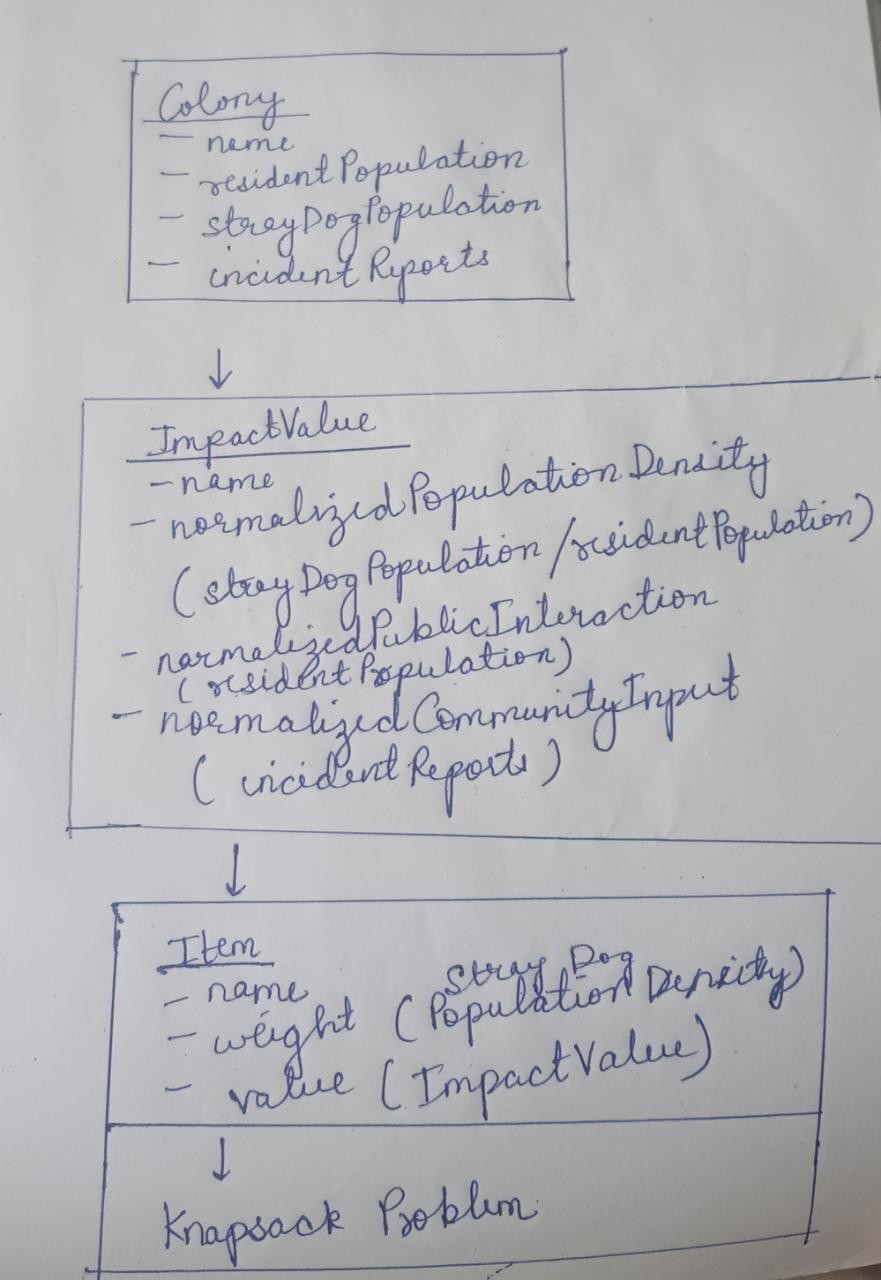 Colony
- name
- residentPopulation
- strayDogPopulation
- incidentReports
↓
ImpactValue
- name
- normalizedPopulationDensity
(strayDogPopulation/residentPopulation)
- normalizedPublicInteraction
(residentPopulation)
- normalizedCommunityInput
(incidentReports)
↓
Item
- name
- weight (Stray Dog
Population Density)
- value (ImpactValue)
↓
Knapsack Problem